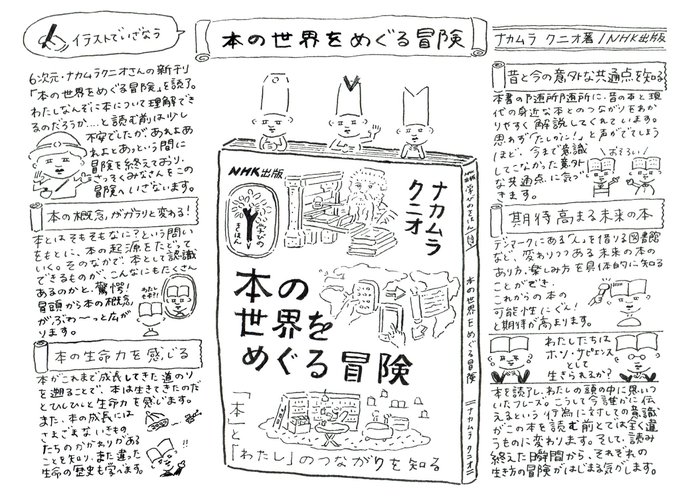 イラストでいざなう
本の世界をめぐる冒険
ナカムラ クニオ著/NHK出版
6次元・ナカムラクニオさんの新刊
「本の世界をめぐる冒険」を読了。
わたしなんぞに本について理解でき
るのだろうか…と読む前は少し
不安でしたが、あれよあ
れよとあっという間に
冒険を終えており、
さっそくみなさんをこの
冒険へいざないます。
本の概念がガラリと変わる!
本とはそもそもなに?という問い
をもとに、本の起源をたどって
いく。そのなかで、本として認識
できるものが、こんなにもたくさん
あるのかと、驚愕!
冒頭から本の概念
がぶわーっと広が
ります。
わたしもほん!
本の生命力を感じる
本がこれまで成長してきた道のり
を遡ることで、本は生きてきたのだ
とひしひしと生命力を感じます。
また、本の成長には
さまざまないきもの
たちのかかわりがある
ことを知り、また違った
生命の歴史も学べます。
NHK出版
学びのきほん
ナカムラ
クニオ
本の
世界を
めぐる冒険
「本」と「わたし」のつながりを知る
本の世界をめぐる冒険
ナカムラ クニオ
昔と今の意外な共通点を知る
本書の随所随所に、昔の本と現
代の身近な本とのつながりをわか
りやすく解説してくれています。
思わず「たしかに!」と声がでてしまう
ほど、今まで意識
してこなかった意外
な共通点に気づ
きます。
おそろい!
期待高まる未来の本
デンマークにある「人」を借りる図書館
など、変わりつつある未来の本の
あり方、楽しみ方を具体的に知る
ことができ、
これからの本の
可能性にぐん!
と期待が高まります。
わたしたちは
ホソ・サピエンス
として
生きられるか?
本を読了し、わたしの頭の中に思いつ
いたフレーズ。こうして今誰かに伝
えるという行為に対しての意識
がこの本を読む前とでは全く違
うものに変わります。そして、読み
終えた瞬間から、それぞれの
生き方の冒険がはじまる気がします。